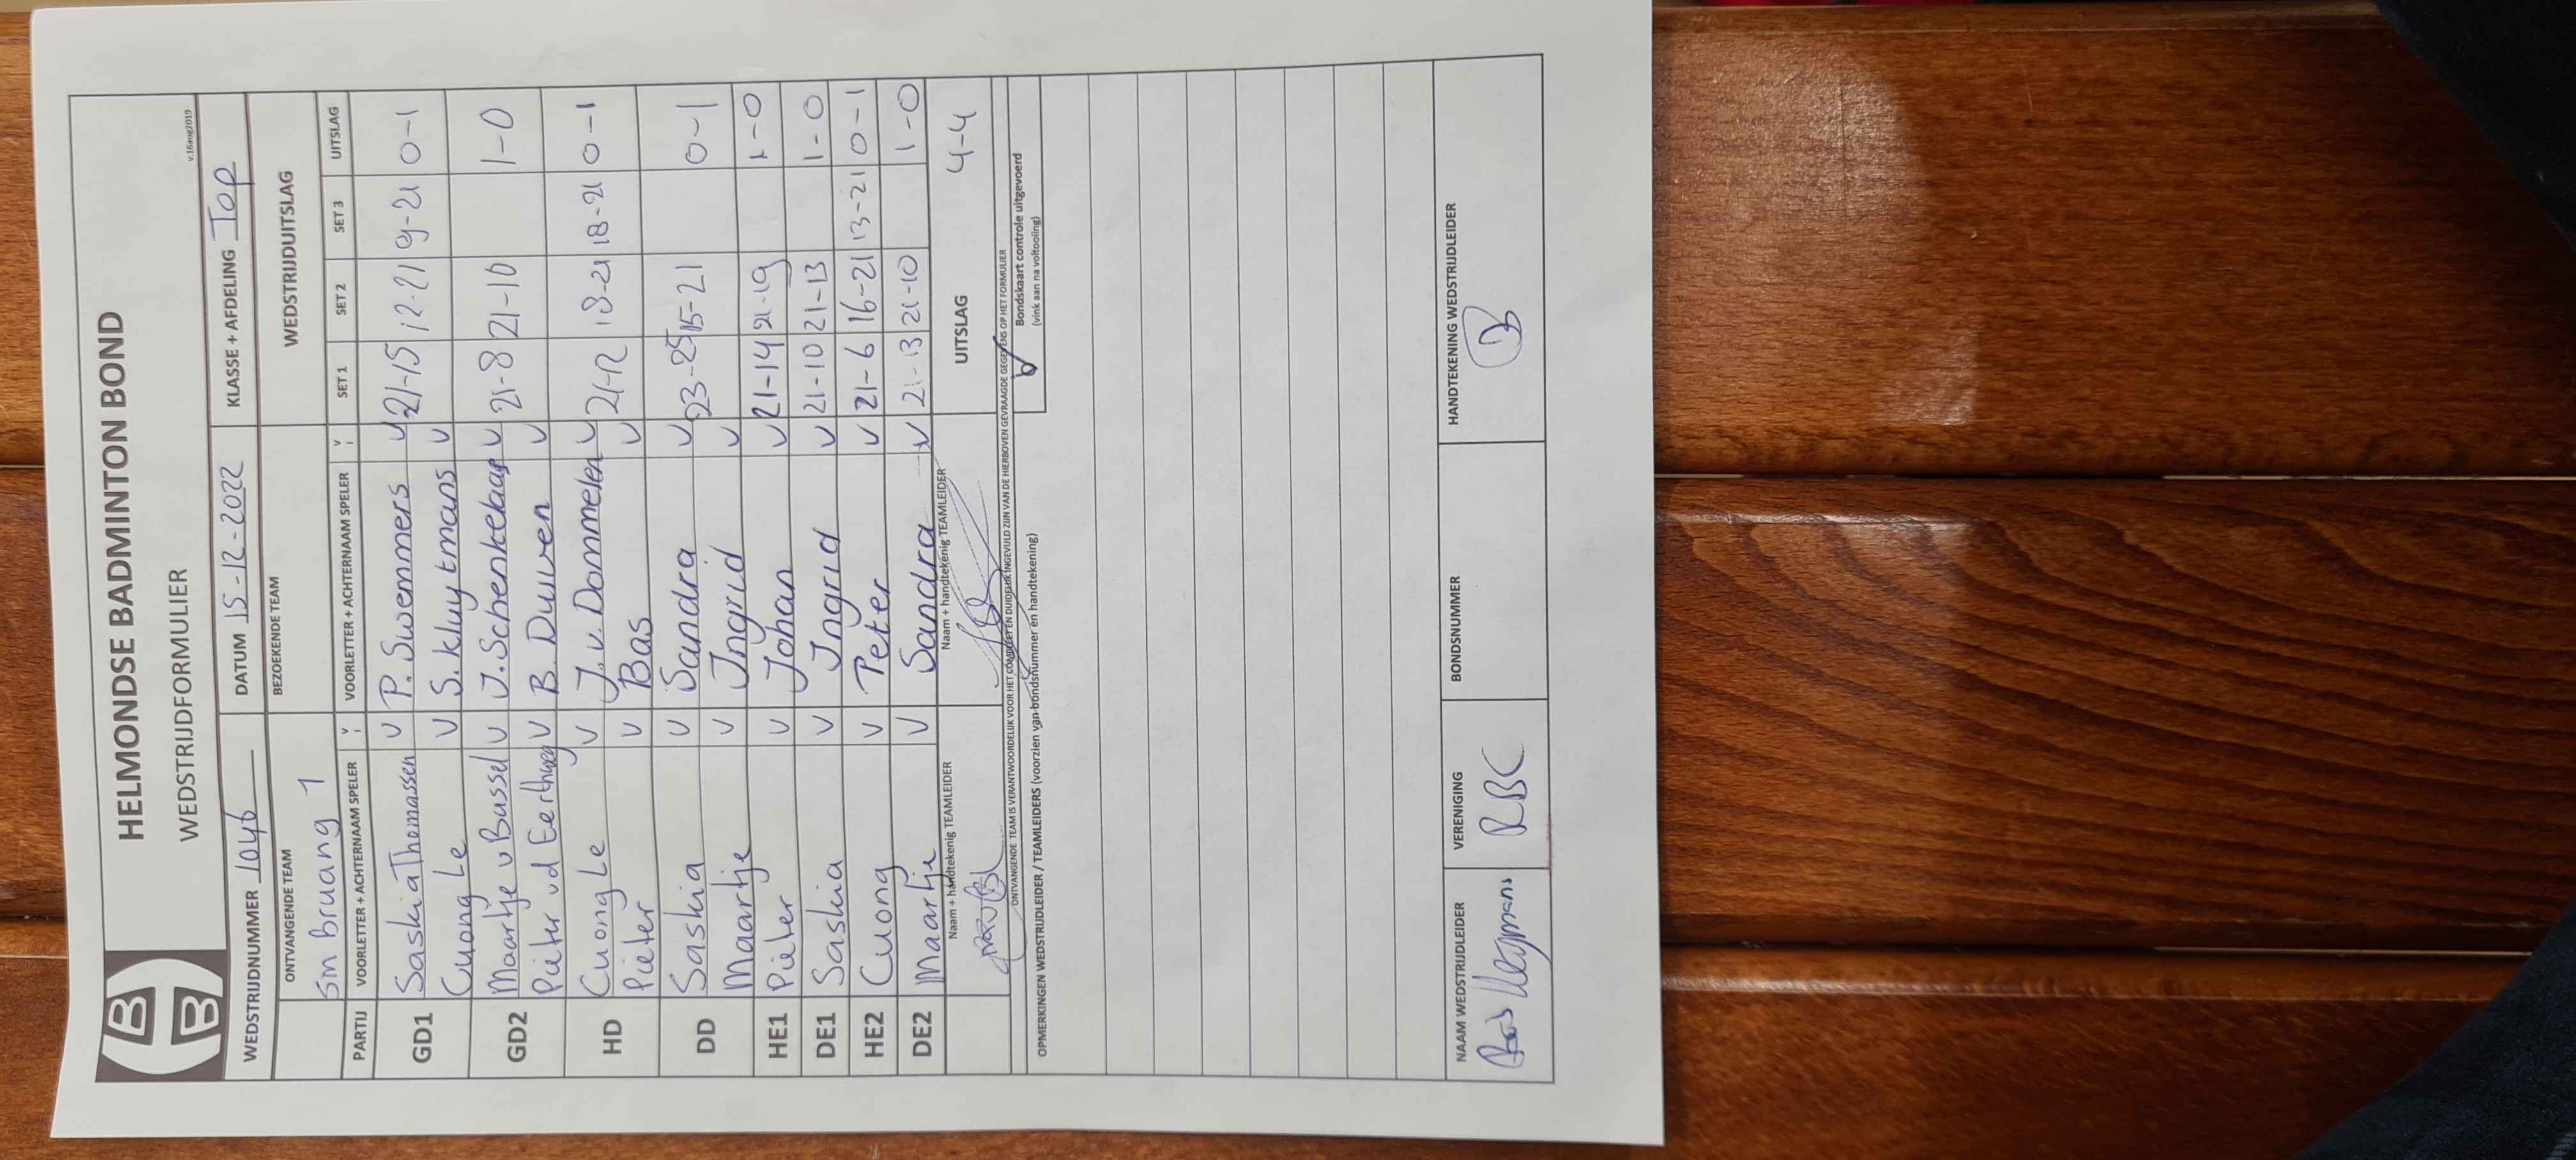 HELMONDSE BADMINTON BOND
WEDSTRIJDFORMULIER
v.16aug2019
WEDSTRIJDNUMMER 1046 DATUM 15-12-2022 KLASSE + AFDELING Top
ONTVANGENDE TEAM BEZOEKENDE TEAM WEDSTRIJDUITSLAG
Sm Bruang 1
PARTIJ VOORLETTER + ACHTERNAAM SPELER V VOORLETTER + ACHTERNAAM SPELER V SET 1 SET 2 SET 3 UITSLAG
GD1 Saskia Thomassen V P. Swemmers V 21-15 12-21 9-21 0-1
Cuong Le V S. kluytmans V
GD2 Maartje v Bussel V J. Schenkelaap V 21-8 21-10 1-0
Pieter vd Eerthweg V B. Duiven V
HD Cuong Le V J. v. Dommelen V 21-12 18-21 18-21 0-1
Pieter V Bas V
DD Saskia V Sandra V 23-25 15-21 0-1
Maartje V Ingrid V
HE1 Pieter V Johan V 21-14 21-19 1-0
DE1 Saskia V Ingrid V 21-10 21-13 1-0
HE2 Cuong V Peter V 21-6 16-21 13-21 0-1
DE2 Maartje V Sandra V 21-13 21-10 1-0
Naam + handtekenig TEAMLEIDER Naam + handtekenig TEAMLEIDER UITSLAG 4-4
ONTVANGENDE TEAM IS VERANTWOORDELIJK VOOR HET COMPLEET EN DUIDELIJK INGEVULD ZIJN VAN DE HIERBOVEN GEVRAAGDE GEGEVENS OP HET FORMULIER
OPMERKINGEN WEDSTRIJDLEIDER / TEAMLEIDERS (voorzien van bondsnummer en handtekening) Bondskaart controle uitgevoerd
(vink aan na voltooiing)
NAAM WEDSTRIJDLEIDER VERENIGING BONDSNUMMER HANDTEKENING WEDSTRIJDLEIDER
RBC